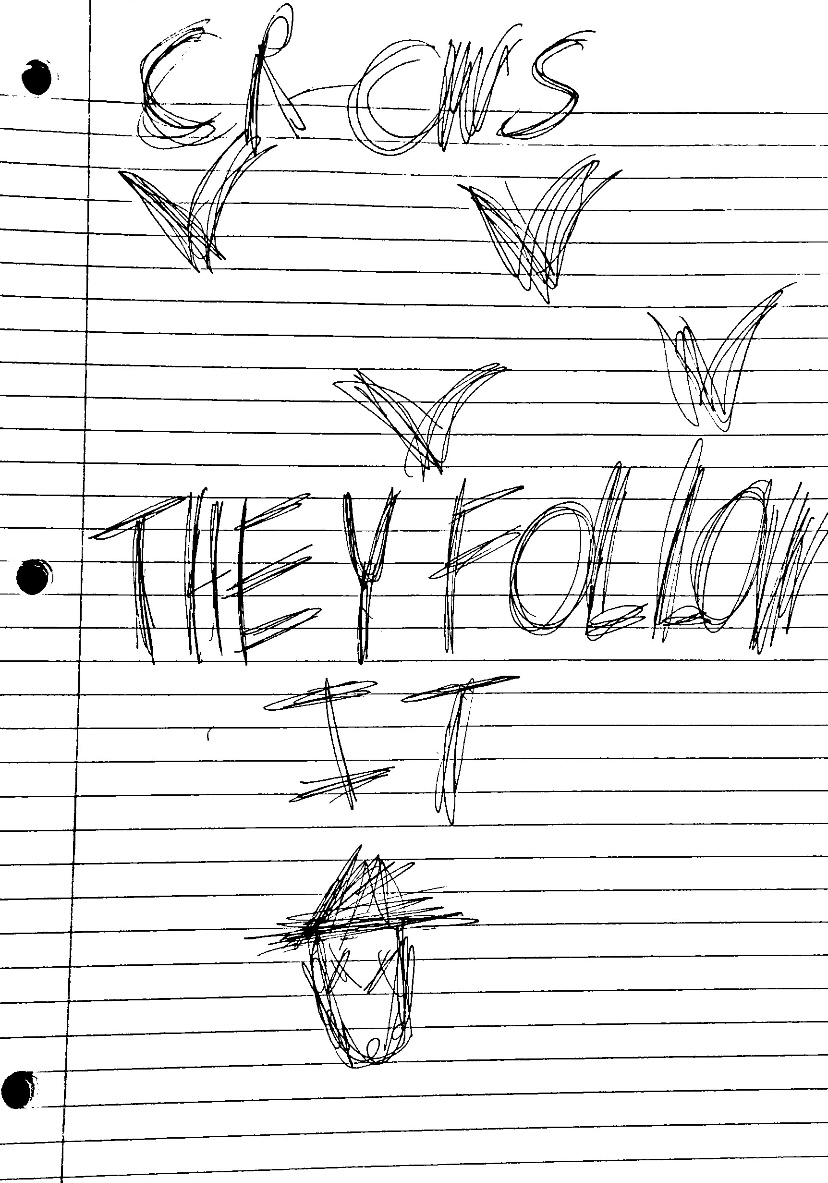 CROWS
THEY FOLLOW
IT